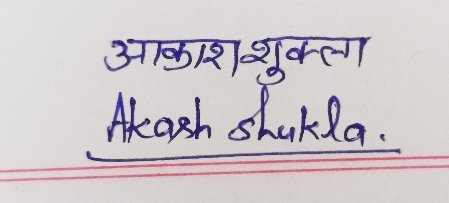 आकाश शुक्ला
Akash shukla.